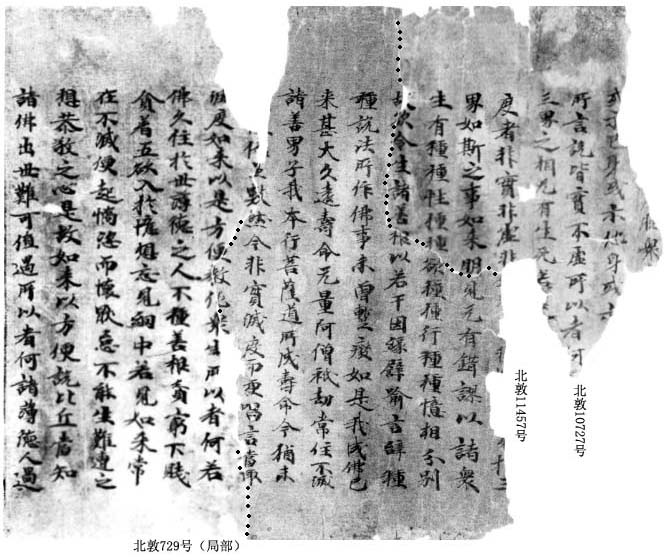 或示己身或示他身或示
所言說皆實不虛所以者何
三界之相无有生死
度者非實非虛非 三
界如斯之事如來明見无有錯謬以諸衆
生有種種性種種欲種種行種種憶想分別
故欲令生諸善根以若干因緣譬喻言辭種
種說法所作佛事未曾暫廢如是我成佛已
來甚大久遠壽命无量阿僧祇劫常住不滅
諸善男子我本行菩薩道所成壽命今猶未
上數然今非實滅度而便唱言當取
滅度如來以是方便教化衆生所以者何若
佛久住於世薄德之人不種善根貧窮下賤
貪著五欲入於憶想妄見網中若見如來常
在不滅便起憍恣而懷厭怠不能生難遭之
想恭敬之心是故如來以方便說比丘當知
諸佛出世難可值遇所以者何諸薄德人過
北敦10727号
北敦11457号
北敦729号（局部）